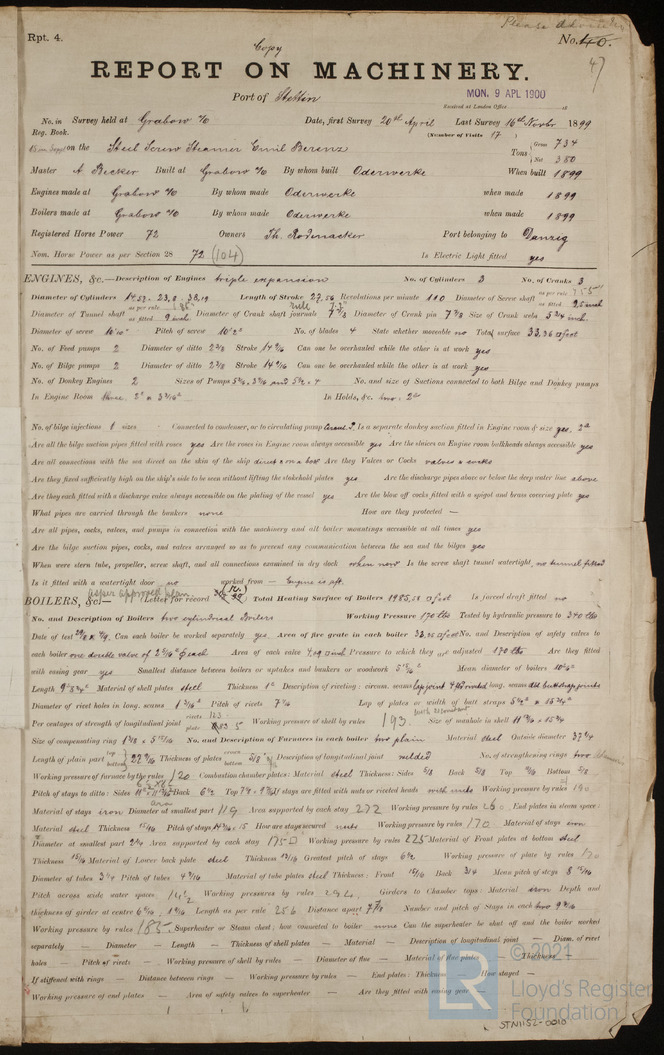 Rpt. 4.
Copy
Please advise
No. 40.
47
REPORT ON MACHINERY.
Port of Stettin
MON. 9 APL 1900
Received at London Office
No. in Survey held at Grabow a/o Date, first Survey 20th April Last Survey 16th Novbr 1899
Reg. Book.
(Number of Visits 17)
on the Steel Screw Steamer Emil Berenz
Tons Gross 734
Net 380
Master A Becker Built at Grabow a/o By whom built Oderwerke When built 1899
Engines made at Grabow a/o By whom made Oderwerke when made 1899
Boilers made at Grabow a/o By whom made Oderwerke when made 1899
Registered Horse Power 72 Owners Th. Rodenacker Port belonging to Danzig
Nom. Horse Power as per Section 28 72 (104) Is Electric Light fitted yes
ENGINES, &c.—Description of Engines triple expansion No. of Cylinders 3 No. of Cranks 3
Diameter of Cylinders Length of Stroke 27.56 Revolutions per minute 110 Diameter of Screw shaft as per rule
as fitted
Diameter of Tunnel shaft as per rule
as fitted 9 inch Diameter of Crank shaft journals 7 7/8 Diameter of Crank pin 7 7/8 Size of Crank webs 5 3/4 inch
Diameter of screw 10'10" Pitch of screw 10'2" No. of blades 4 State whether moveable no Total surface 33,36 □foot
No. of Feed pumps 2 Diameter of ditto 2 3/8 Stroke 14 9/16 Can one be overhauled while the other is at work yes
No. of Bilge pumps 2 Diameter of ditto 2 3/8 Stroke 14 9/16 Can one be overhauled while the other is at work yes
No. of Donkey Engines 2 Sizes of Pumps No. and size of Suctions connected to both Bilge and Donkey pumps
In Engine Room three. In Holds, &c. two. 2"
No. of bilge injections 1 sizes Connected to condenser, or to circulating pump Is a separate donkey suction fitted in Engine room & size yes, 2"
Are all the bilge suction pipes fitted with roses yes Are the roses in Engine room always accessible yes Are the sluices on Engine room bulkheads always accessible yes
Are all connections with the sea direct on the skin of the ship Are they Valves or Cocks valves & cocks
Are they fixed sufficiently high on the ship's side to be seen without lifting the stokehold plates yes Are the discharge pipes above or below the deep water line above
Are they each fitted with a discharge valve always accessible on the plating of the vessel yes Are the blow off cocks fitted with a spigot and brass covering plate yes
What pipes are carried through the bunkers none How are they protected —
Are all pipes, cocks, valves, and pumps in connection with the machinery and all boiler mountings accessible at all times yes
Are the bilge suction pipes, cocks, and valves arranged so as to prevent any communication between the sea and the bilges yes
When were stern tube, propeller, screw shaft, and all connections examined in dry dock when new Is the screw shaft tunnel watertight no tunnel fitted
Is it fitted with a watertight door no worked from — Engine is aft.
as per approved plan
BOILERS, &c.— (Letter for record) Total Heating Surface of Boilers 1985,58 □foot Is forced draft fitted no
No. and Description of Boilers two cylindrical Boilers Working Pressure 170 lbs Tested by hydraulic pressure to 340 lbs
Date of test Can each boiler be worked separately yes Area of fire grate in each boiler No. and Description of safety valves to
each boiler one double valve of Area of each valve Pressure to which they are adjusted 170 lbs Are they fitted
with easing gear yes Smallest distance between boilers or uptakes and bunkers or woodwork Mean diameter of boilers
Length Material of shell plates steel Thickness 1" Description of riveting: circum. seams lap joint long. seams
Diameter of rivet holes in long. seams Pitch of rivets 7 1/4 Lap of plates or width of butt straps
Per centages of strength of longitudinal joint rivets
plate Working pressure of shell by rules 193. Size of manhole in shell 11 3/4 x 15 3/4
Size of compensating ring No. and Description of Furnaces in each boiler two plain Material steel Outside diameter 37 1/4
Length of plain part top
bottom Thickness of plates crown
bottom Description of longitudinal joint welded No. of strengthening rings two
Working pressure of furnace by the rules 120 Combustion chamber plates: Material steel Thickness: Sides 5/8 Back 5/8 Top Bottom
Pitch of stays to ditto: Sides Back Top If stays are fitted with nuts or riveted heads with nuts Working pressure by rules
Material of stays iron Diameter at smallest part Area supported by each stay 272 Working pressure by rules End plates in steam space:
Material steel Thickness 15/16 Pitch of stays How are stays secured nuts Working pressure by rules 170 Material of stays iron
Diameter at smallest part Area supported by each stay 175 □ Working pressure by rules 225 Material of Front plates at bottom steel
Thickness 15/16 Material of Lower back plate steel Thickness Greatest pitch of stays 6 1/2 Working pressure of plate by rules
Diameter of tubes 3 1/4 Pitch of tubes Material of tube plates steel Thickness: Front 15/16 Back 3/4 Mean pitch of stays
Pitch across wide water spaces 14 1/2 Working pressures by rules Girders to Chamber tops: Material iron Depth and
thickness of girder at centre Length as per rule 25 6 Distance apart 7 7/8 Number and pitch of Stays in each two
Working pressure by rules 185. Superheater or Steam chest; how connected to boiler none Can the superheater be shut off and the boiler worked
separately — Diameter — Length — Thickness of shell plates — Material — Description of longitudinal joint — Diam. of rivet
holes — Pitch of rivets — Working pressure of shell by rules — Diameter of flue — Material of flue plates — Thickness —
If stiffened with rings — Distance between rings — Working pressure by rules — End plates: Thickness — How stayed —
Working pressure of end plates — Area of safety valves to superheater — Are they fitted with easing gear —
© 2021
Lloyd's Register
Foundation
STN1152-0010